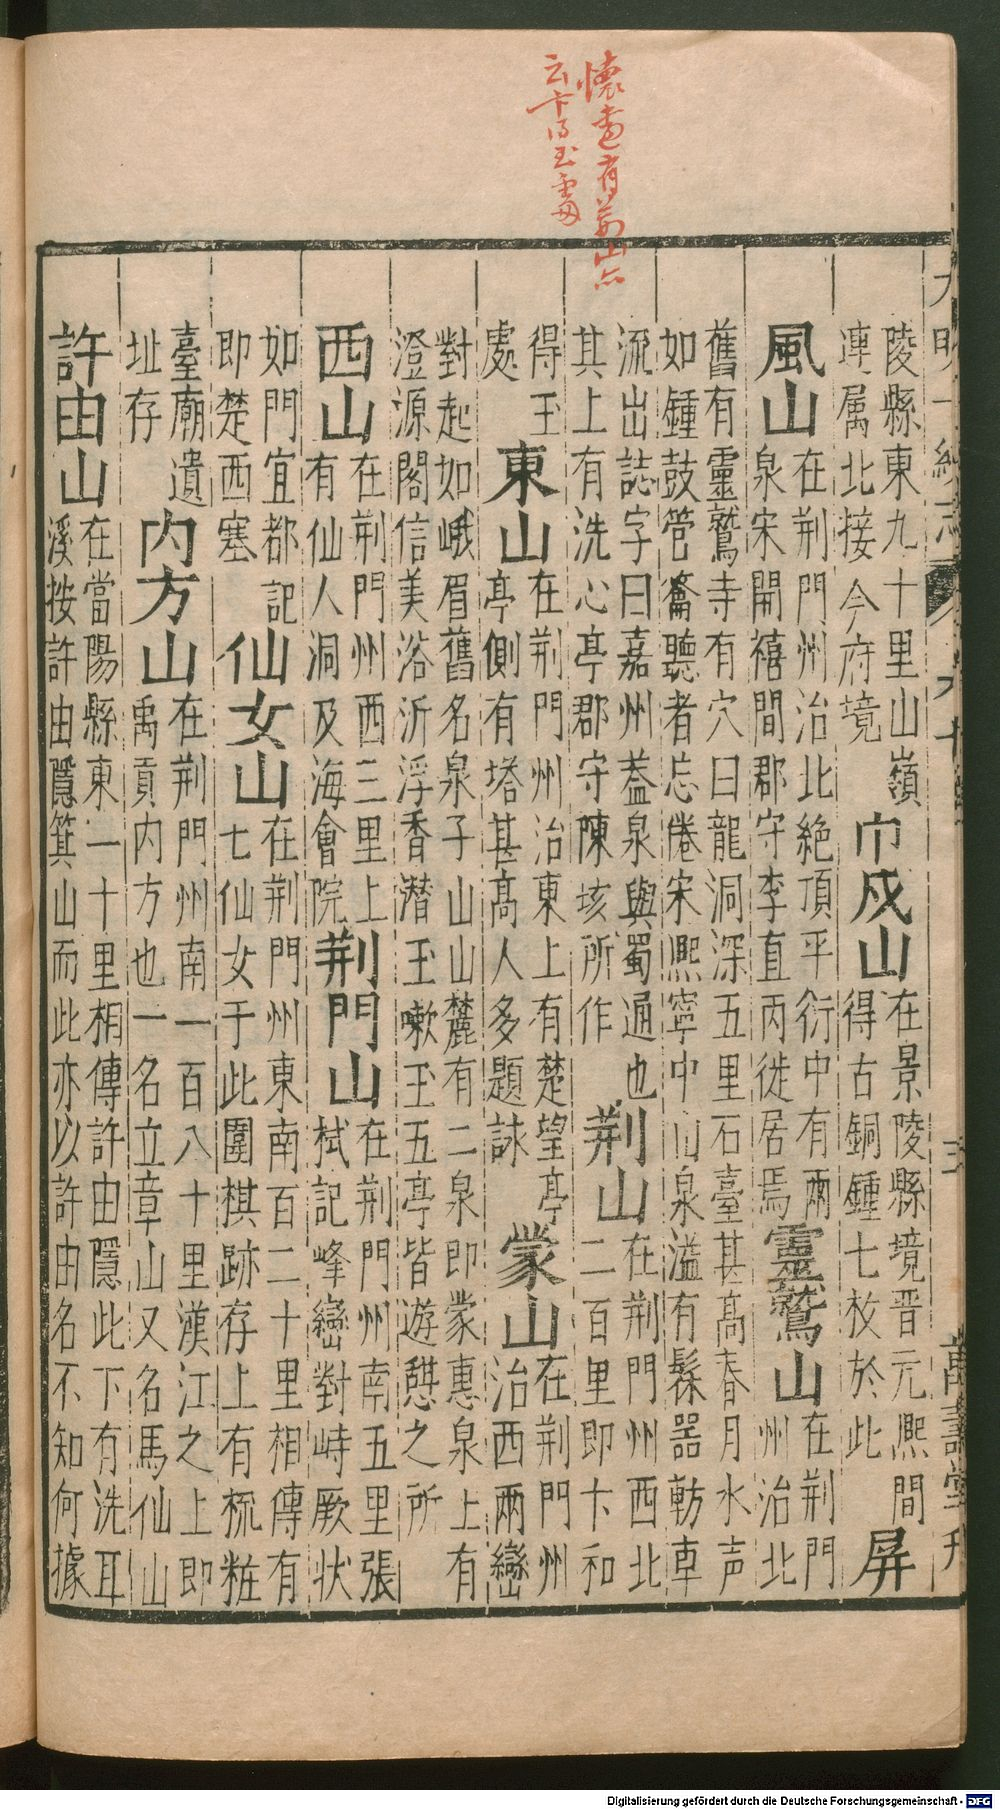 懷慶府荊山亦
云卞得玉處
大明一統志 卷六十 三 萬壽堂刊
陵縣東九十里山嶺
連属北接今府境
巾戍山
在景陵縣境晋元熙間
得古銅鍾七枚於此
屏
風山
在荆門州治北絶頂平衍中有兩
泉宋開禧間郡守李直丙徙居焉
靈鷲山
在荆門
州治北
舊有靈鷲寺有穴曰龍洞深五里石臺甚高春月水声
如鍾鼓管籥聽者忘倦宋熙寧中山泉溢有髹器軿車
流出誌字曰嘉州葢泉與蜀通也
其上有洗心亭郡守陳垓所作
荆山
在荆門州西北
二百里即卞和
得玉
處
東山
在荆門州治東上有楚望亭
亭側有塔甚髙人多題詠
蒙山
在荆門州
治西兩巒
對起如峨眉舊名泉子山山麓有二泉即蒙惠泉上有
澄源閣信美浴沂浮香潛玉嗽玉五亭皆遊憇之所
西山
在荆門州西三里上
有仙人洞及海會院
荆門山
在荆門州南五里張
栻記峰巒對峙厥状
如門宜都記
即楚西塞
仙女山
在荆門州東南百二十里相傳有
七仙女于此圍棋跡存上有梳粧
臺廟遺
址存
内方山
在荆門州南一百八十里漢江之上即
禹貢内方也一名立章山又名馬仙山
許由山
在當陽縣東一十里相傳許由隱此下有洗耳
溪按許由隱箕山而此亦以許由名不知何據
Digitalisierung gefördert durch die Deutsche Forschungsgemeinschaft - DFG